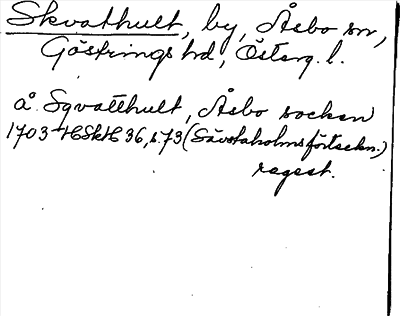 Skvathult, by, Åsbo sn,
Göstrings hd, Österg. l.
å Sqvatthult, Åsbo socken
1703 HSkH 36, s. 73 (Sävstaholms förteckn.)
regest.